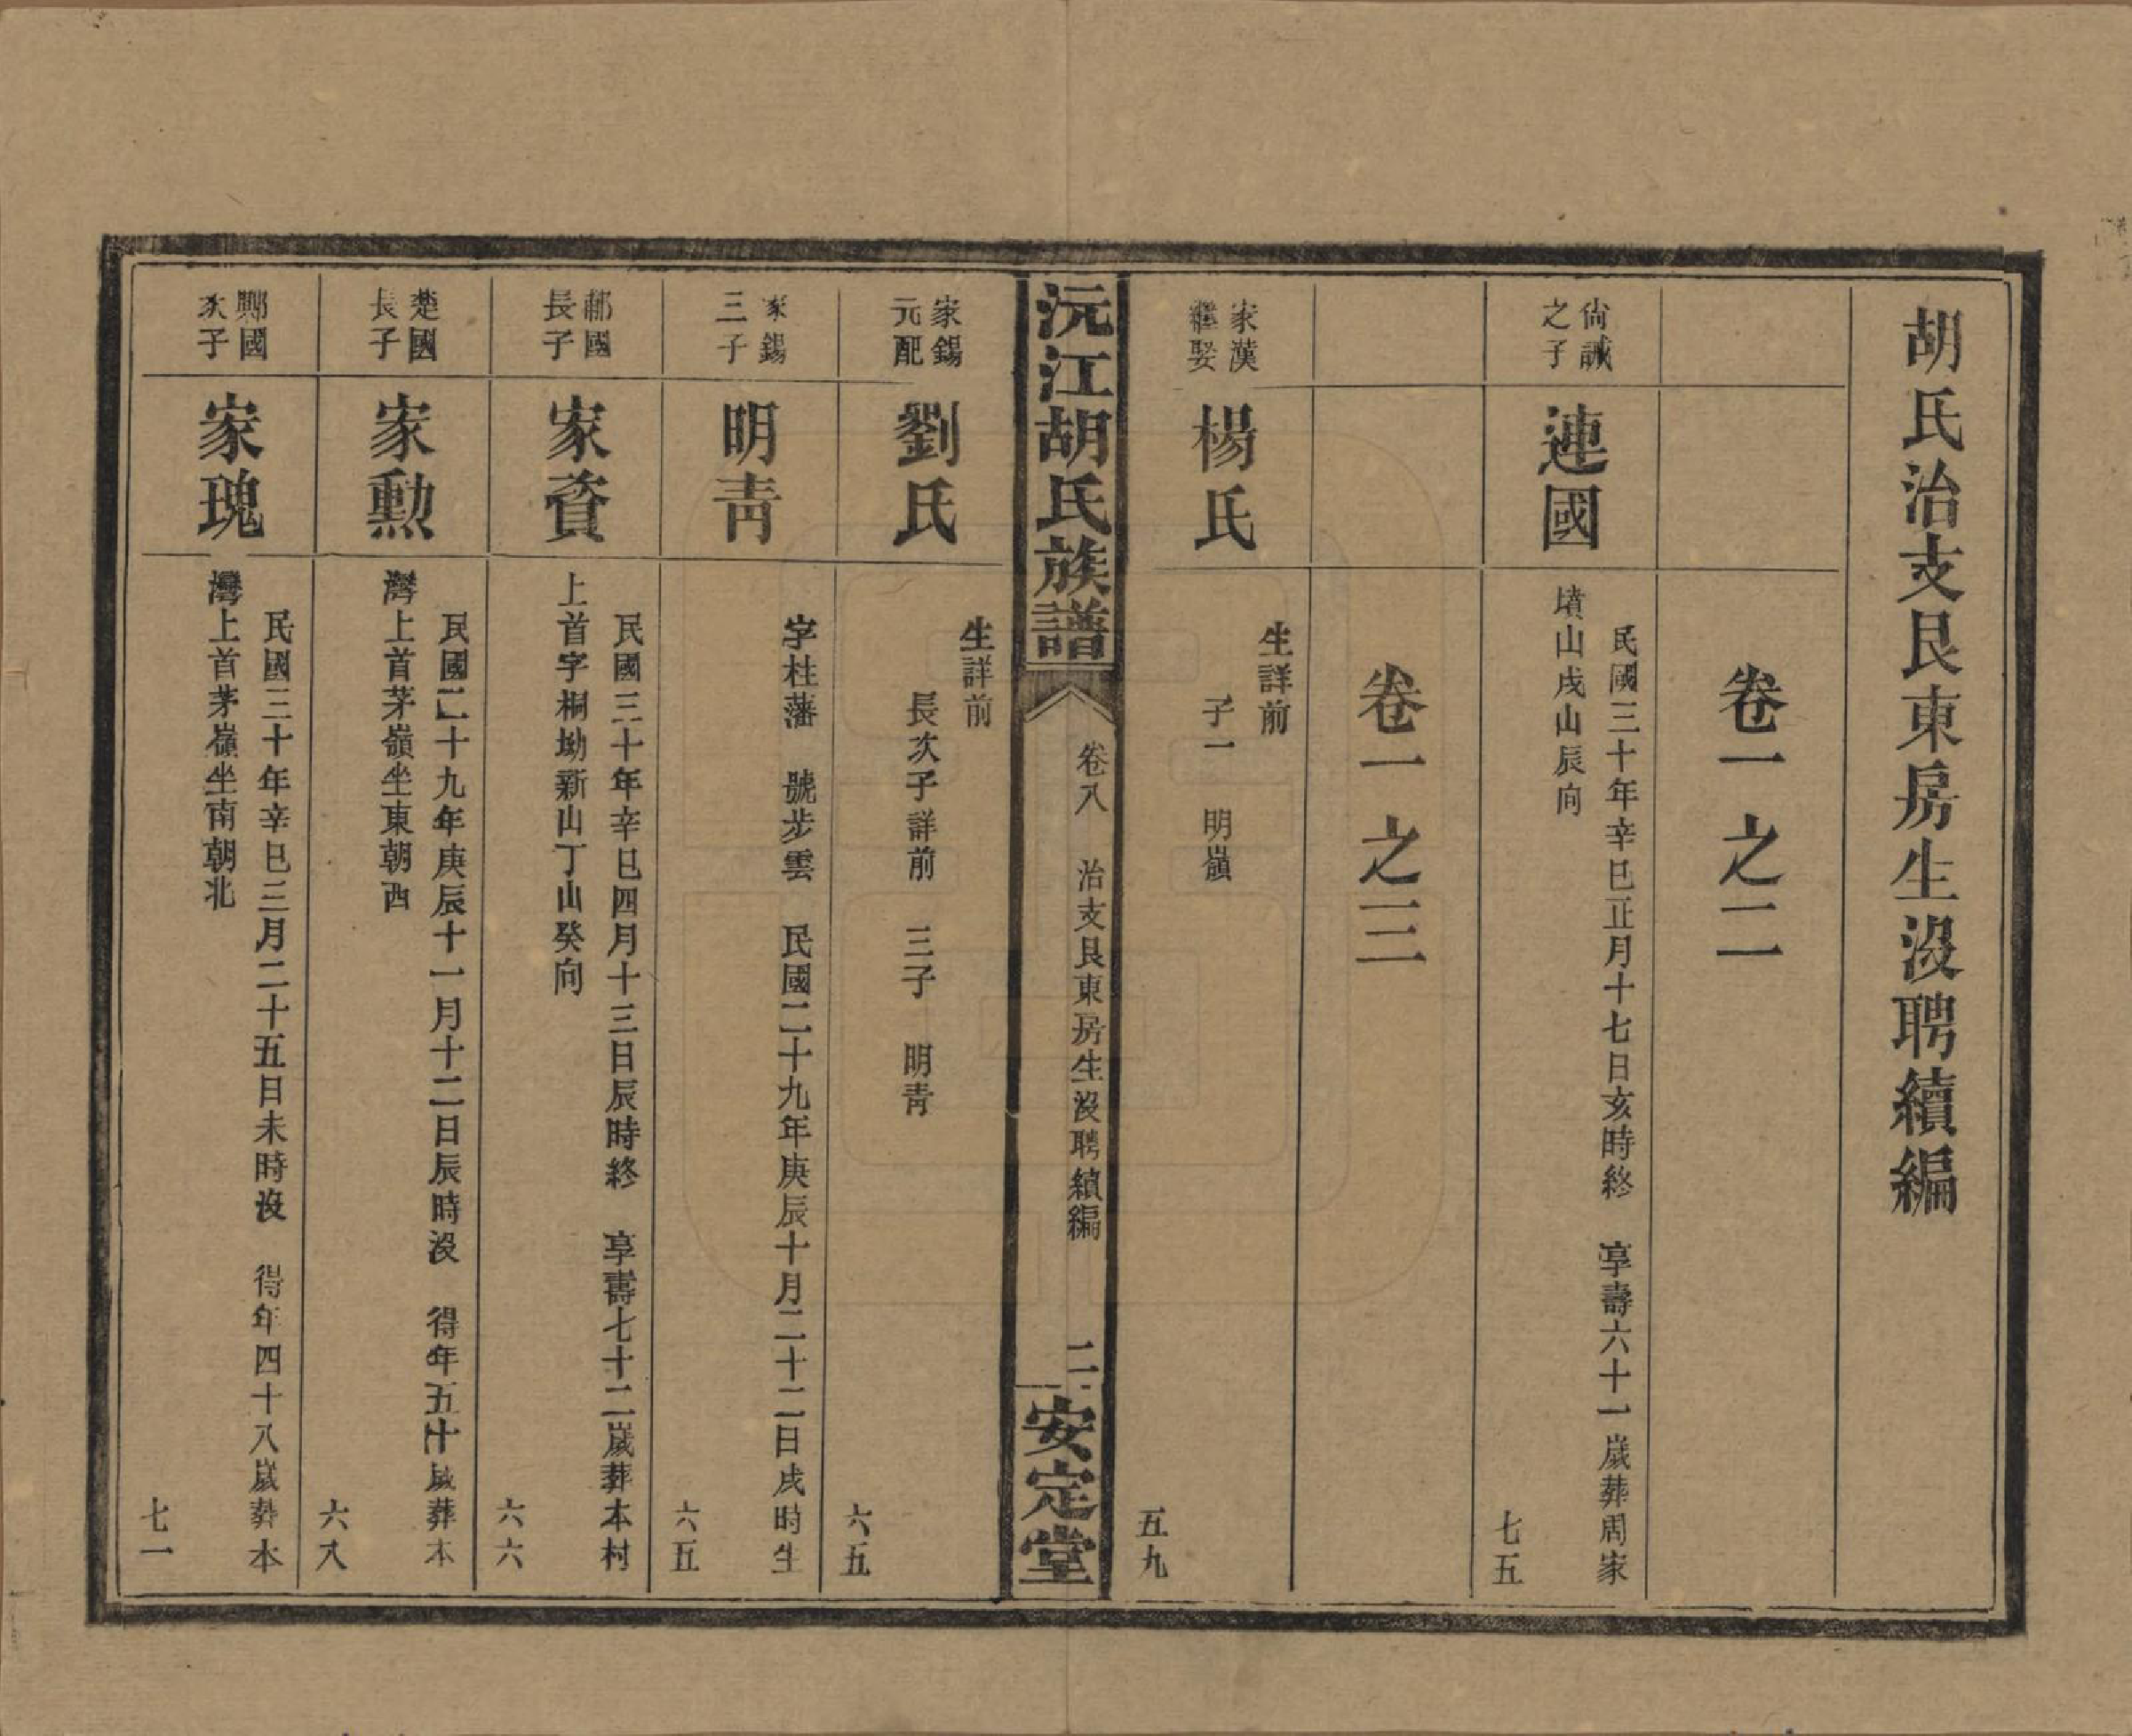 胡氏治支艮東房生沒聘續編
卷一之二
尙誠
之子
連國
民國三十年辛巳正月十七日亥時終 享壽六十一歲葬周家
墳山戌山辰向
七五
卷一之三
家漢
繼娶
楊氏
生詳前
子一 明嶺
五九
沅江胡氏族譜
卷八 治支艮東房生沒聘續編
二
安定堂
家錫
元配
劉氏
生詳前
長次子詳前 三子 明靑
六五
家錫
三子
明靑
字柱藩 號步雲 民國二十九年庚辰十月二十二日戌時生
六五
郙國
長子
家資
民國三十年辛巳四月十三日辰時終 享壽七十二歲葬本村
上首字桐坳新山丁山癸向
六六
楚國
長子
家勲
民國二十九年庚辰十一月十二日辰時沒 得年五十歲葬本
灣上首茅嶺坐東朝西
六八
鄴國
次子
家瑰
民國三十年辛巳三月二十五日未時沒 得年四十八歲葬本
灣上首茅嶺坐南朝北
七一